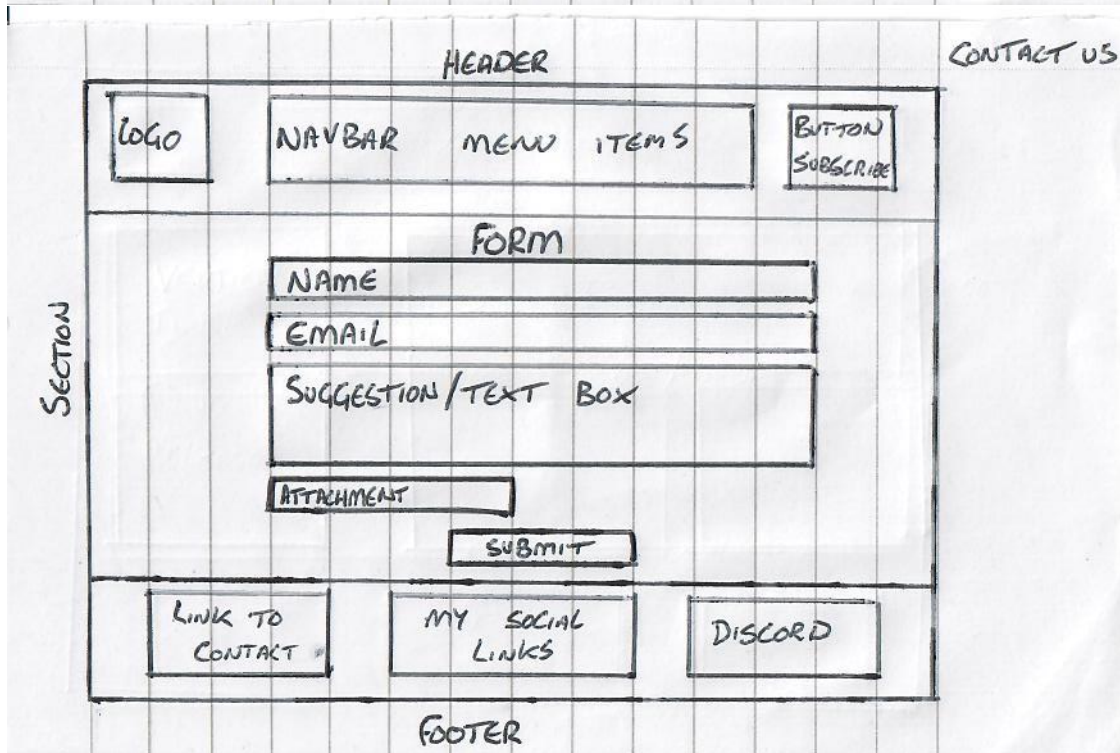 HEADER
CONTACT US
LOGO
NAVBAR MENU ITEMS
BUTTON
SUBSCRIBE
SECTION
FORM
NAME
EMAIL
SUGGESTION/TEXT BOX
ATTACHMENT
SUBMIT
LINK TO
CONTACT
MY SOCIAL
LINKS
DISCORD
FOOTER